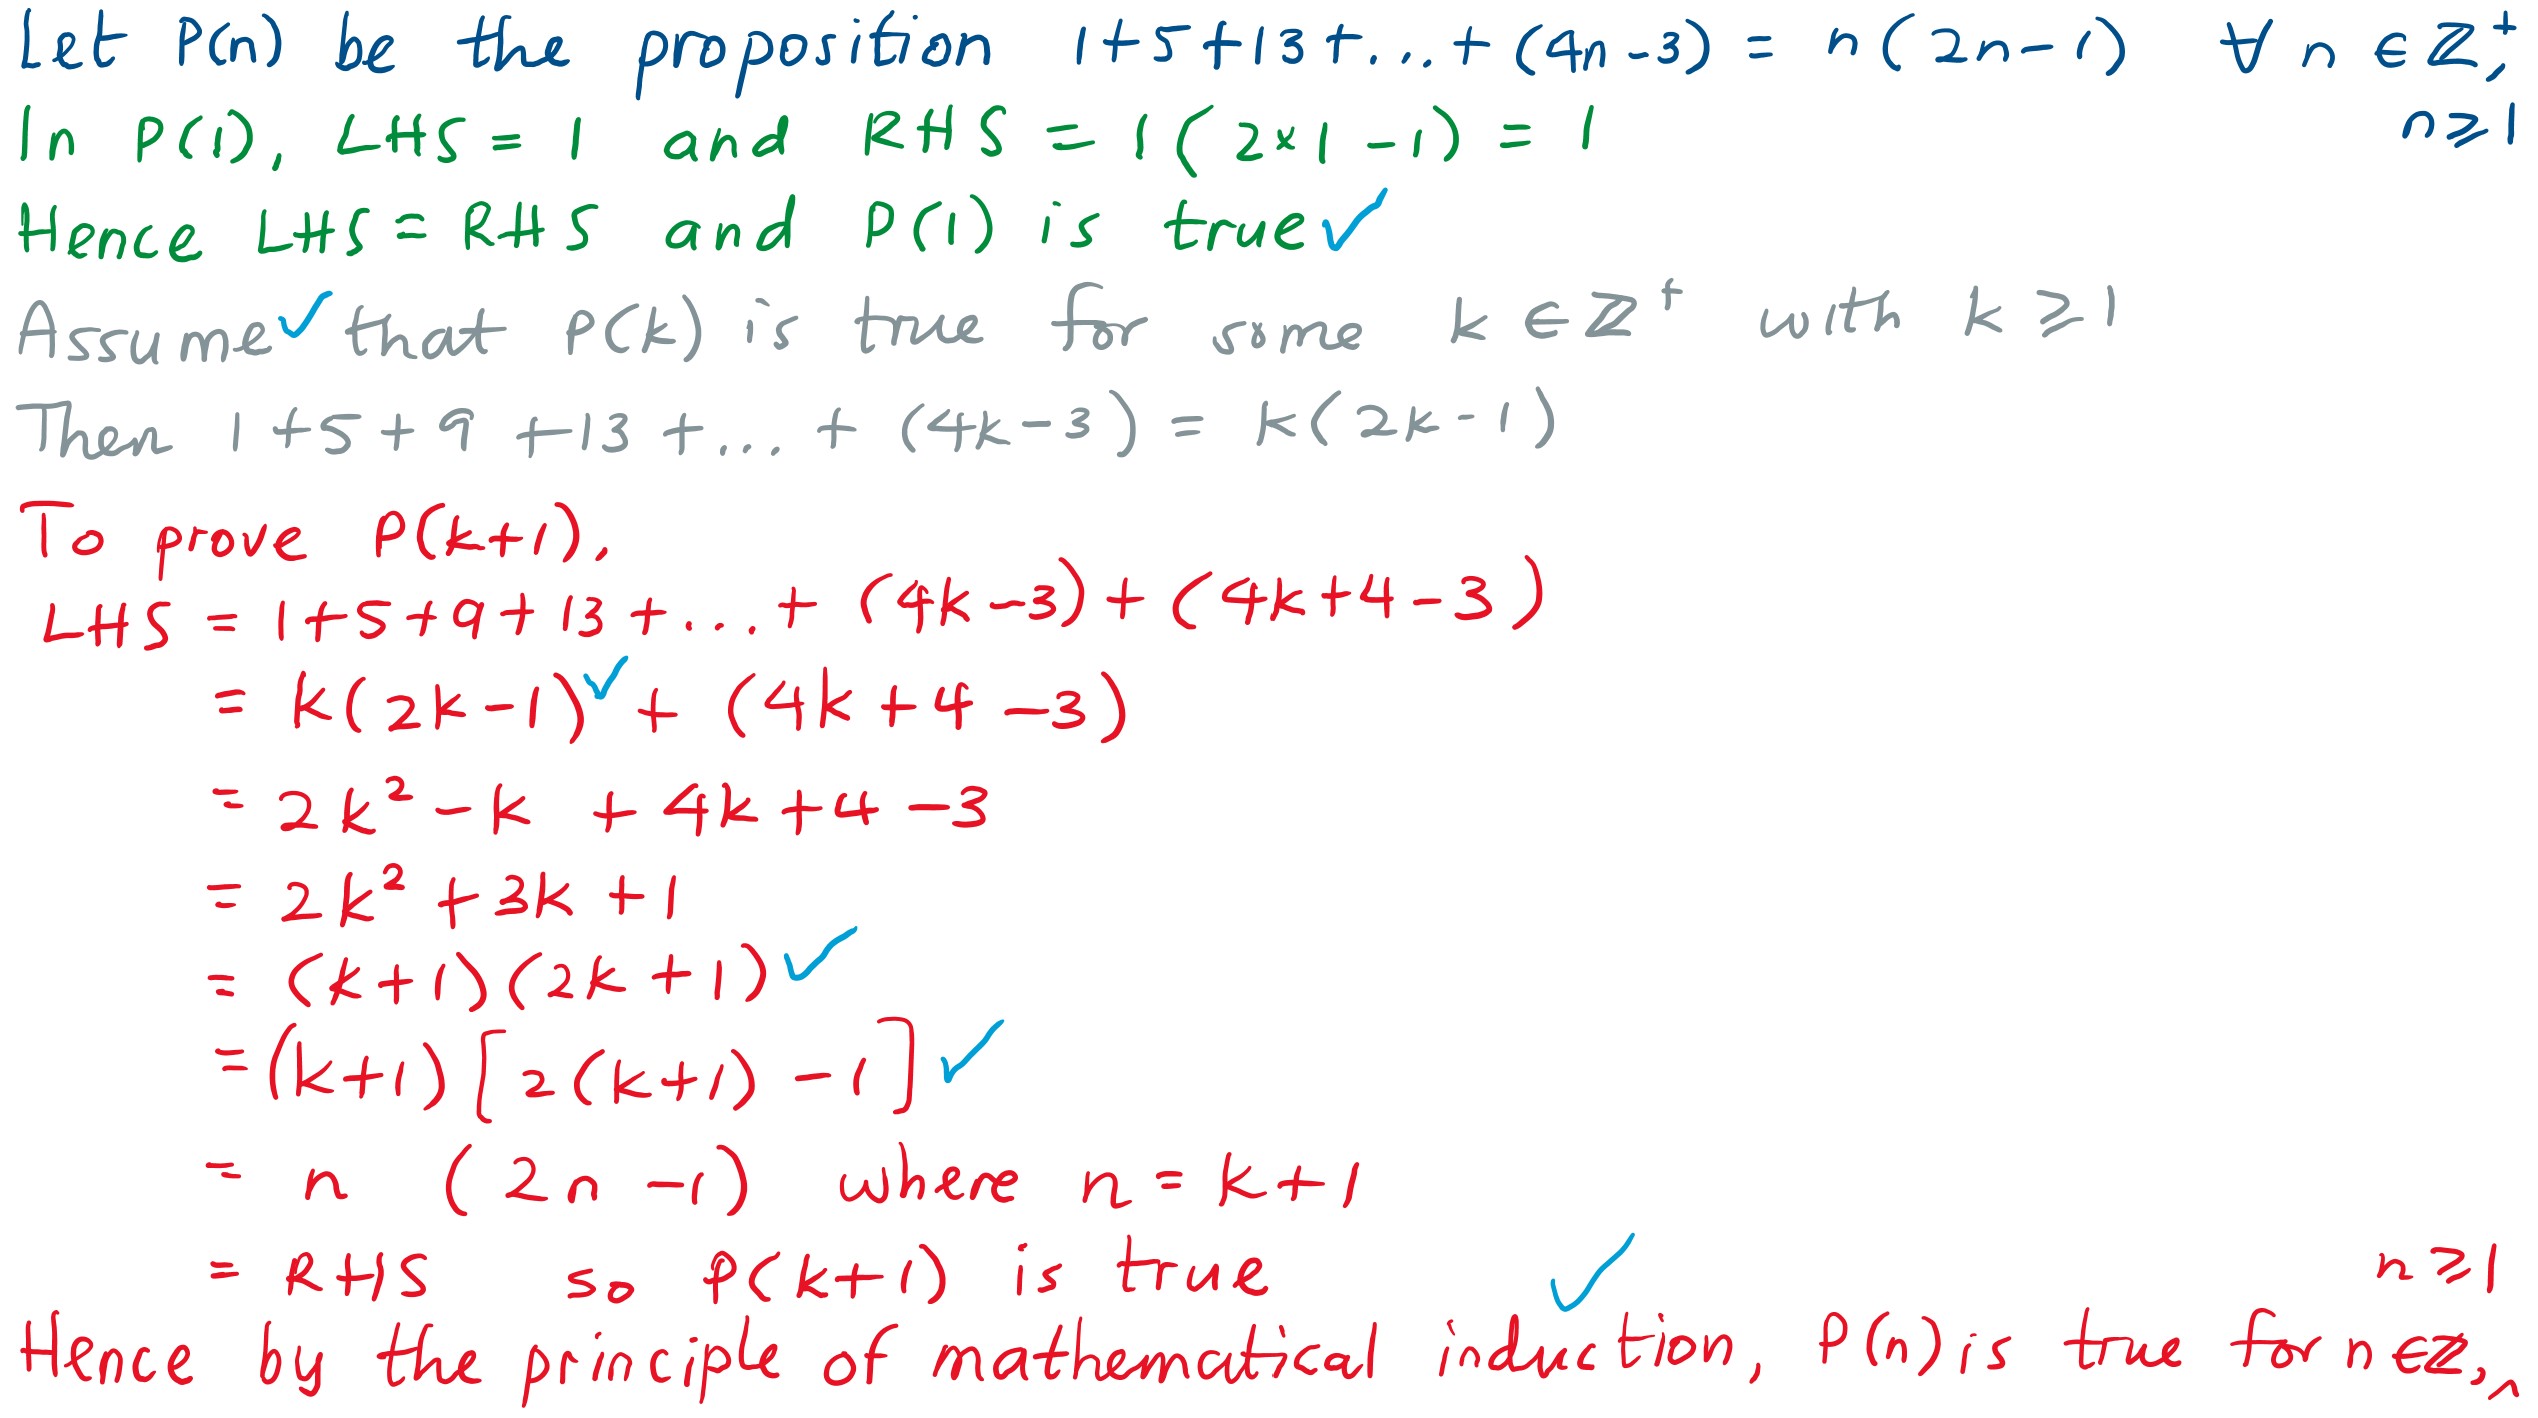 Let P(n) be the proposition 1+5+13+...+(4n-3) = n(2n-1) ∀ n ∈ ℤ⁺,
n ≥ 1
In P(1), LHS = 1 and RHS = 1(2×1-1) = 1
Hence LHS = RHS and P(1) is true ✓
Assume ✓ that P(k) is true for some k ∈ ℤ⁺ with k ≥ 1
Then 1+5+9+13+...+(4k-3) = k(2k-1)
To prove P(k+1),
LHS = 1+5+9+13+...+(4k-3)+(4k+4-3)
= k(2k-1) ✓ + (4k+4-3)
= 2k²-k +4k+4-3
= 2k²+3k+1
= (k+1)(2k+1) ✓
= (k+1)[2(k+1)-1] ✓
= n (2n-1) where n = k+1
= RHS so P(k+1) is true ✓
n ≥ 1
Hence by the principle of mathematical induction, P(n) is true for n ∈ ℤ, ^